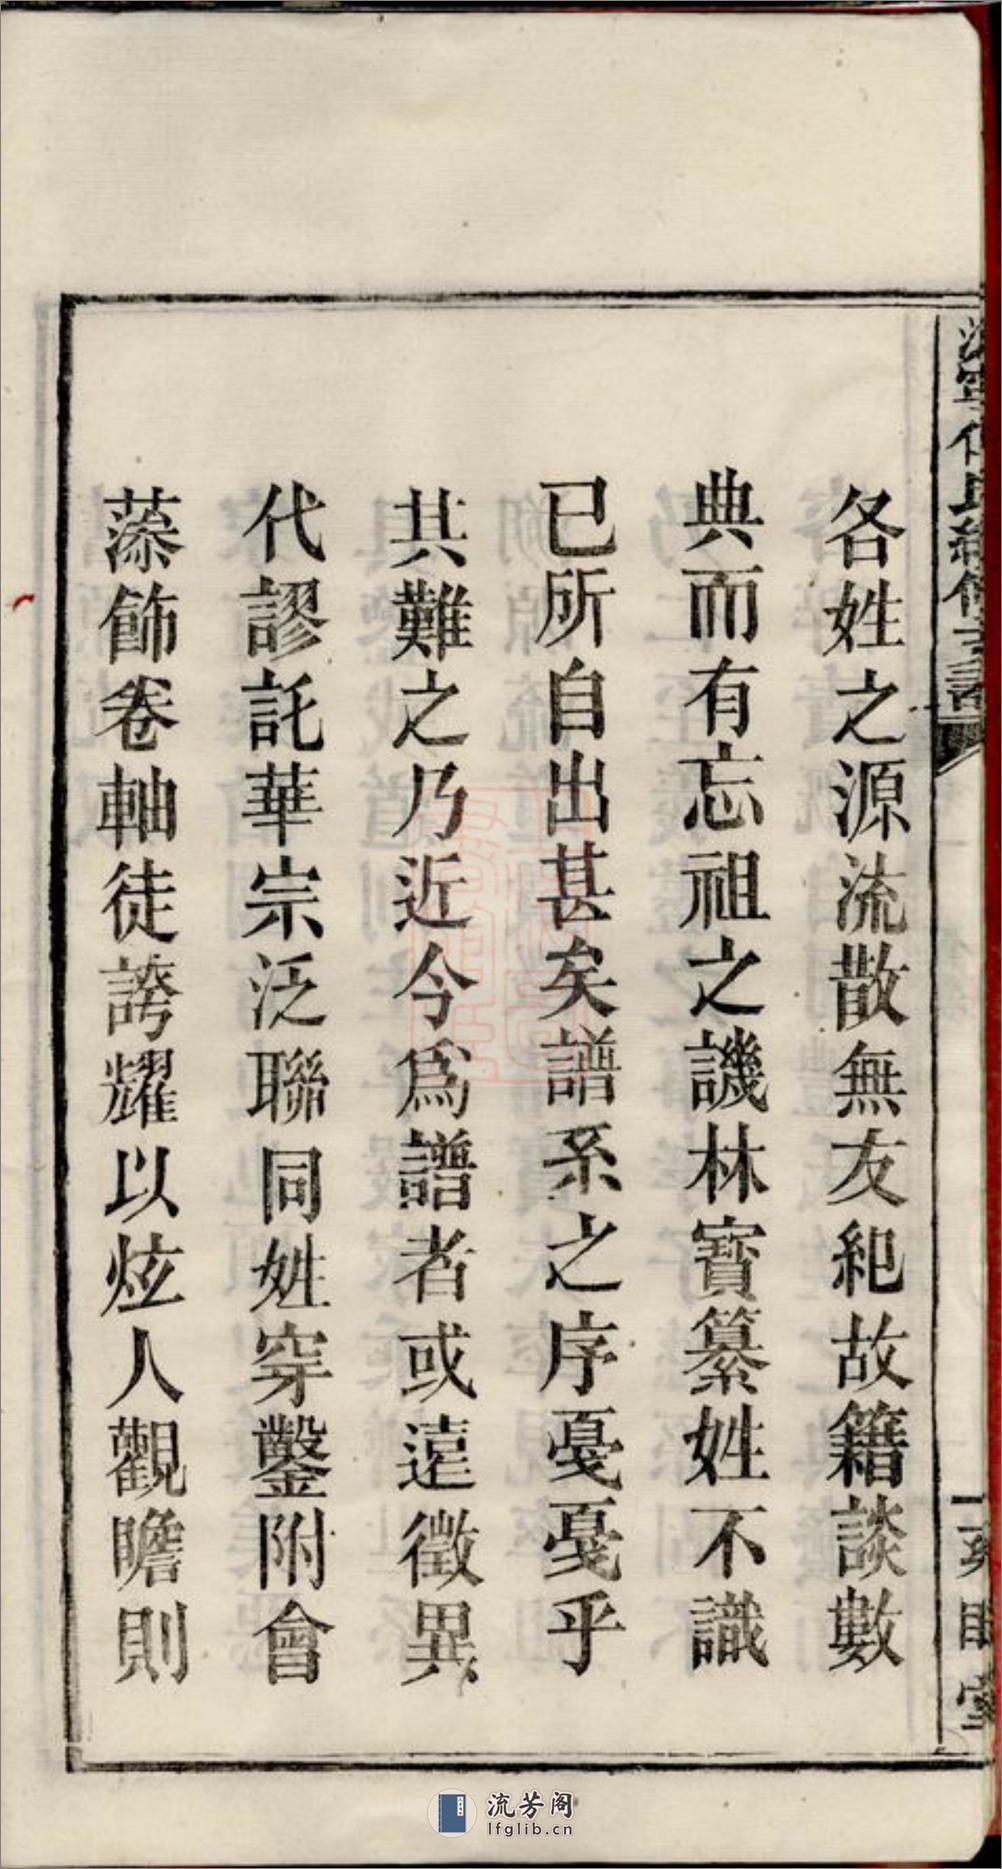 各姓之源流散無友紀故籍談數
典而有忘祖之譏林寶纂姓不識
已所自出甚矣譜系之序戞戞乎
其難之乃近今爲譜者或遠徵異
代謬託華宗泛聯同姓穿鑿附會
藻飾卷軸徒誇耀以炫人觀瞻則
流芳阁
lfglib.cn